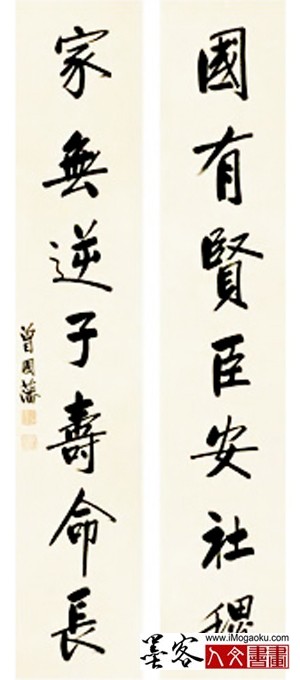 國有賢臣安社稷
家無逆子壽命長
曾國藩
墨客
www.iMogaoku.com
人文書畫